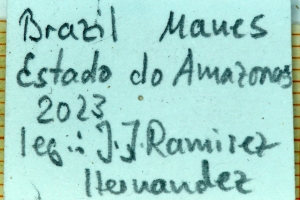 Brazil Maues
Estado do Amazonas
2023
leg.: J.J. Ramirez
Hernandez